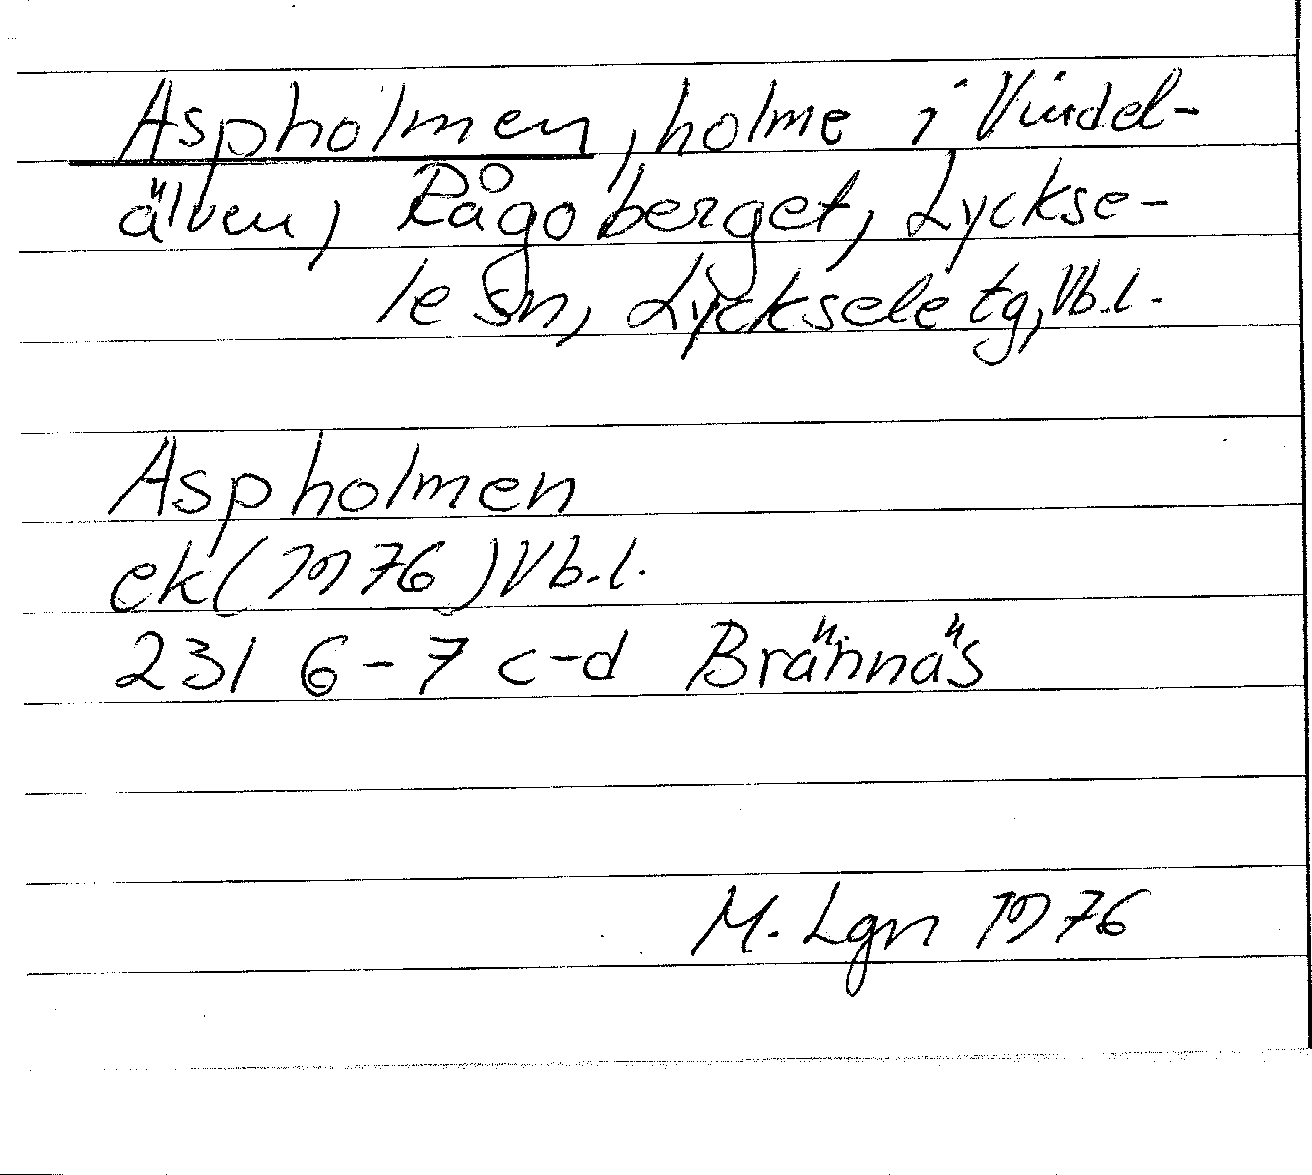 Aspholmen, holme i Vindel-
älven, Rågoberget, Lyckse-
le sn, Lycksele tg, Vb.l.
Aspholmen
ek (1976) Vb.l.
231 6-7 c-d Brännäs
M. Lgn 1976